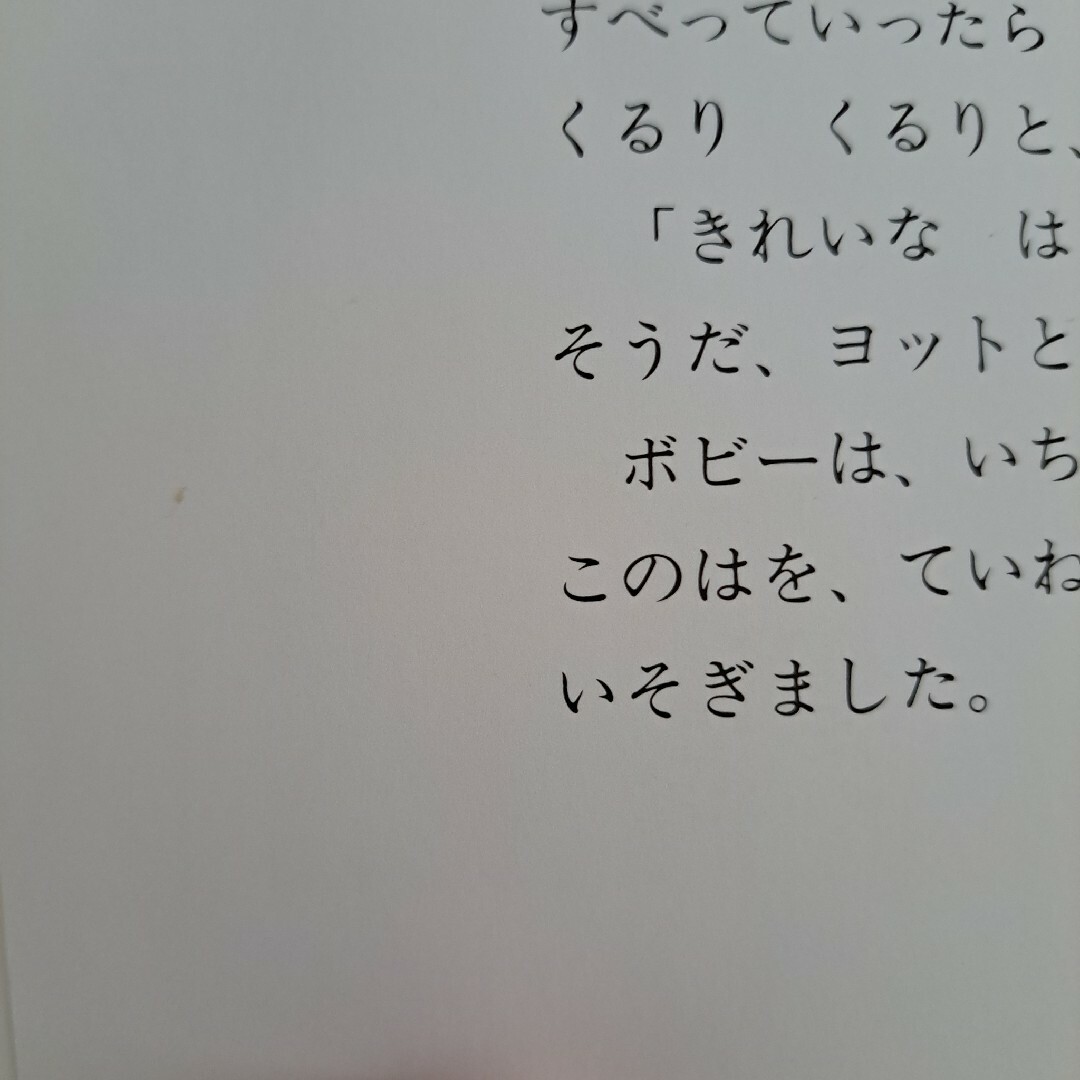 すべっていったら
くるり　くるりと、
「きれいな　は
そうだ、ヨットと
ボビーは、いち
このはを、ていね
いそぎました。